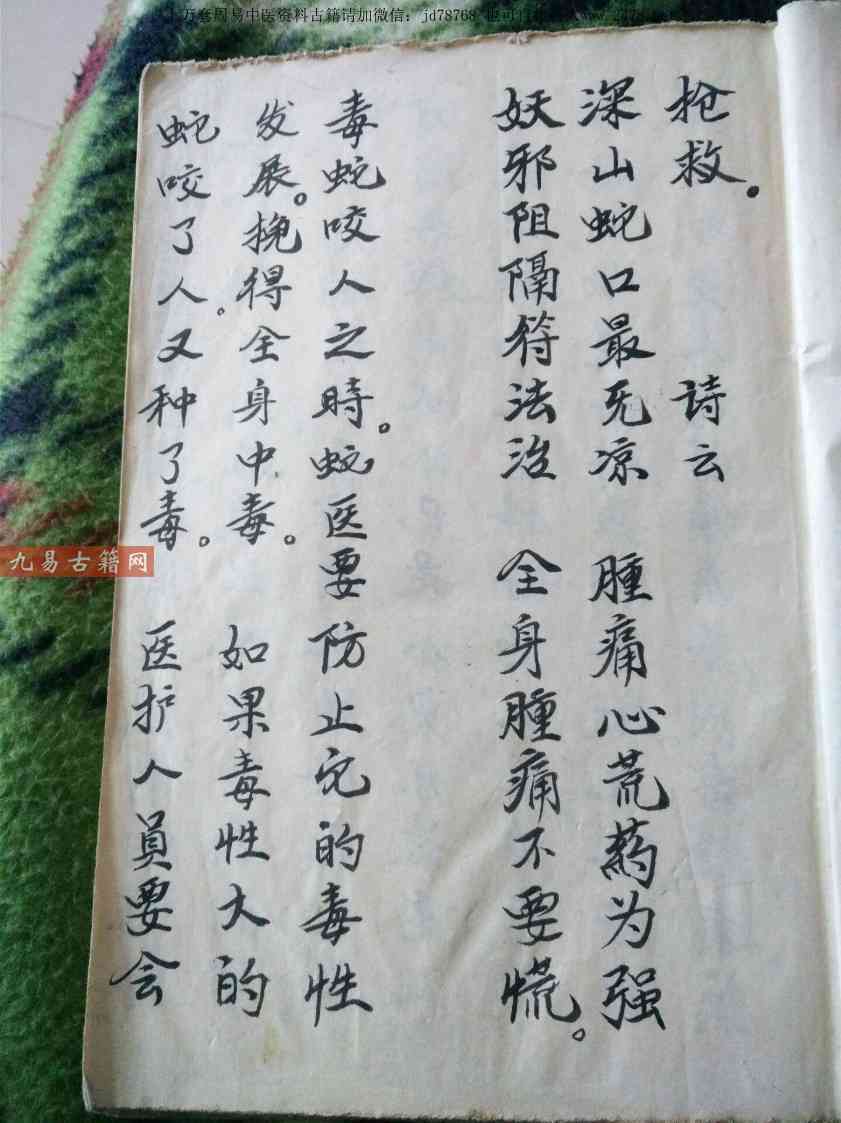 万套周易中医资料古籍请加微信：jd78768
抢救。 詩云
深山蛇口最无凉 腫痛心荒葯为强
妖邪阻隔符法治 全身腫痛不要慌。
毒蛇咬人之時。蛇医要防止它的毒性
发展。挽得全身中毒。 如果毒性大的
蛇咬了人。又种了毒。 医护人員要会
九易古籍网